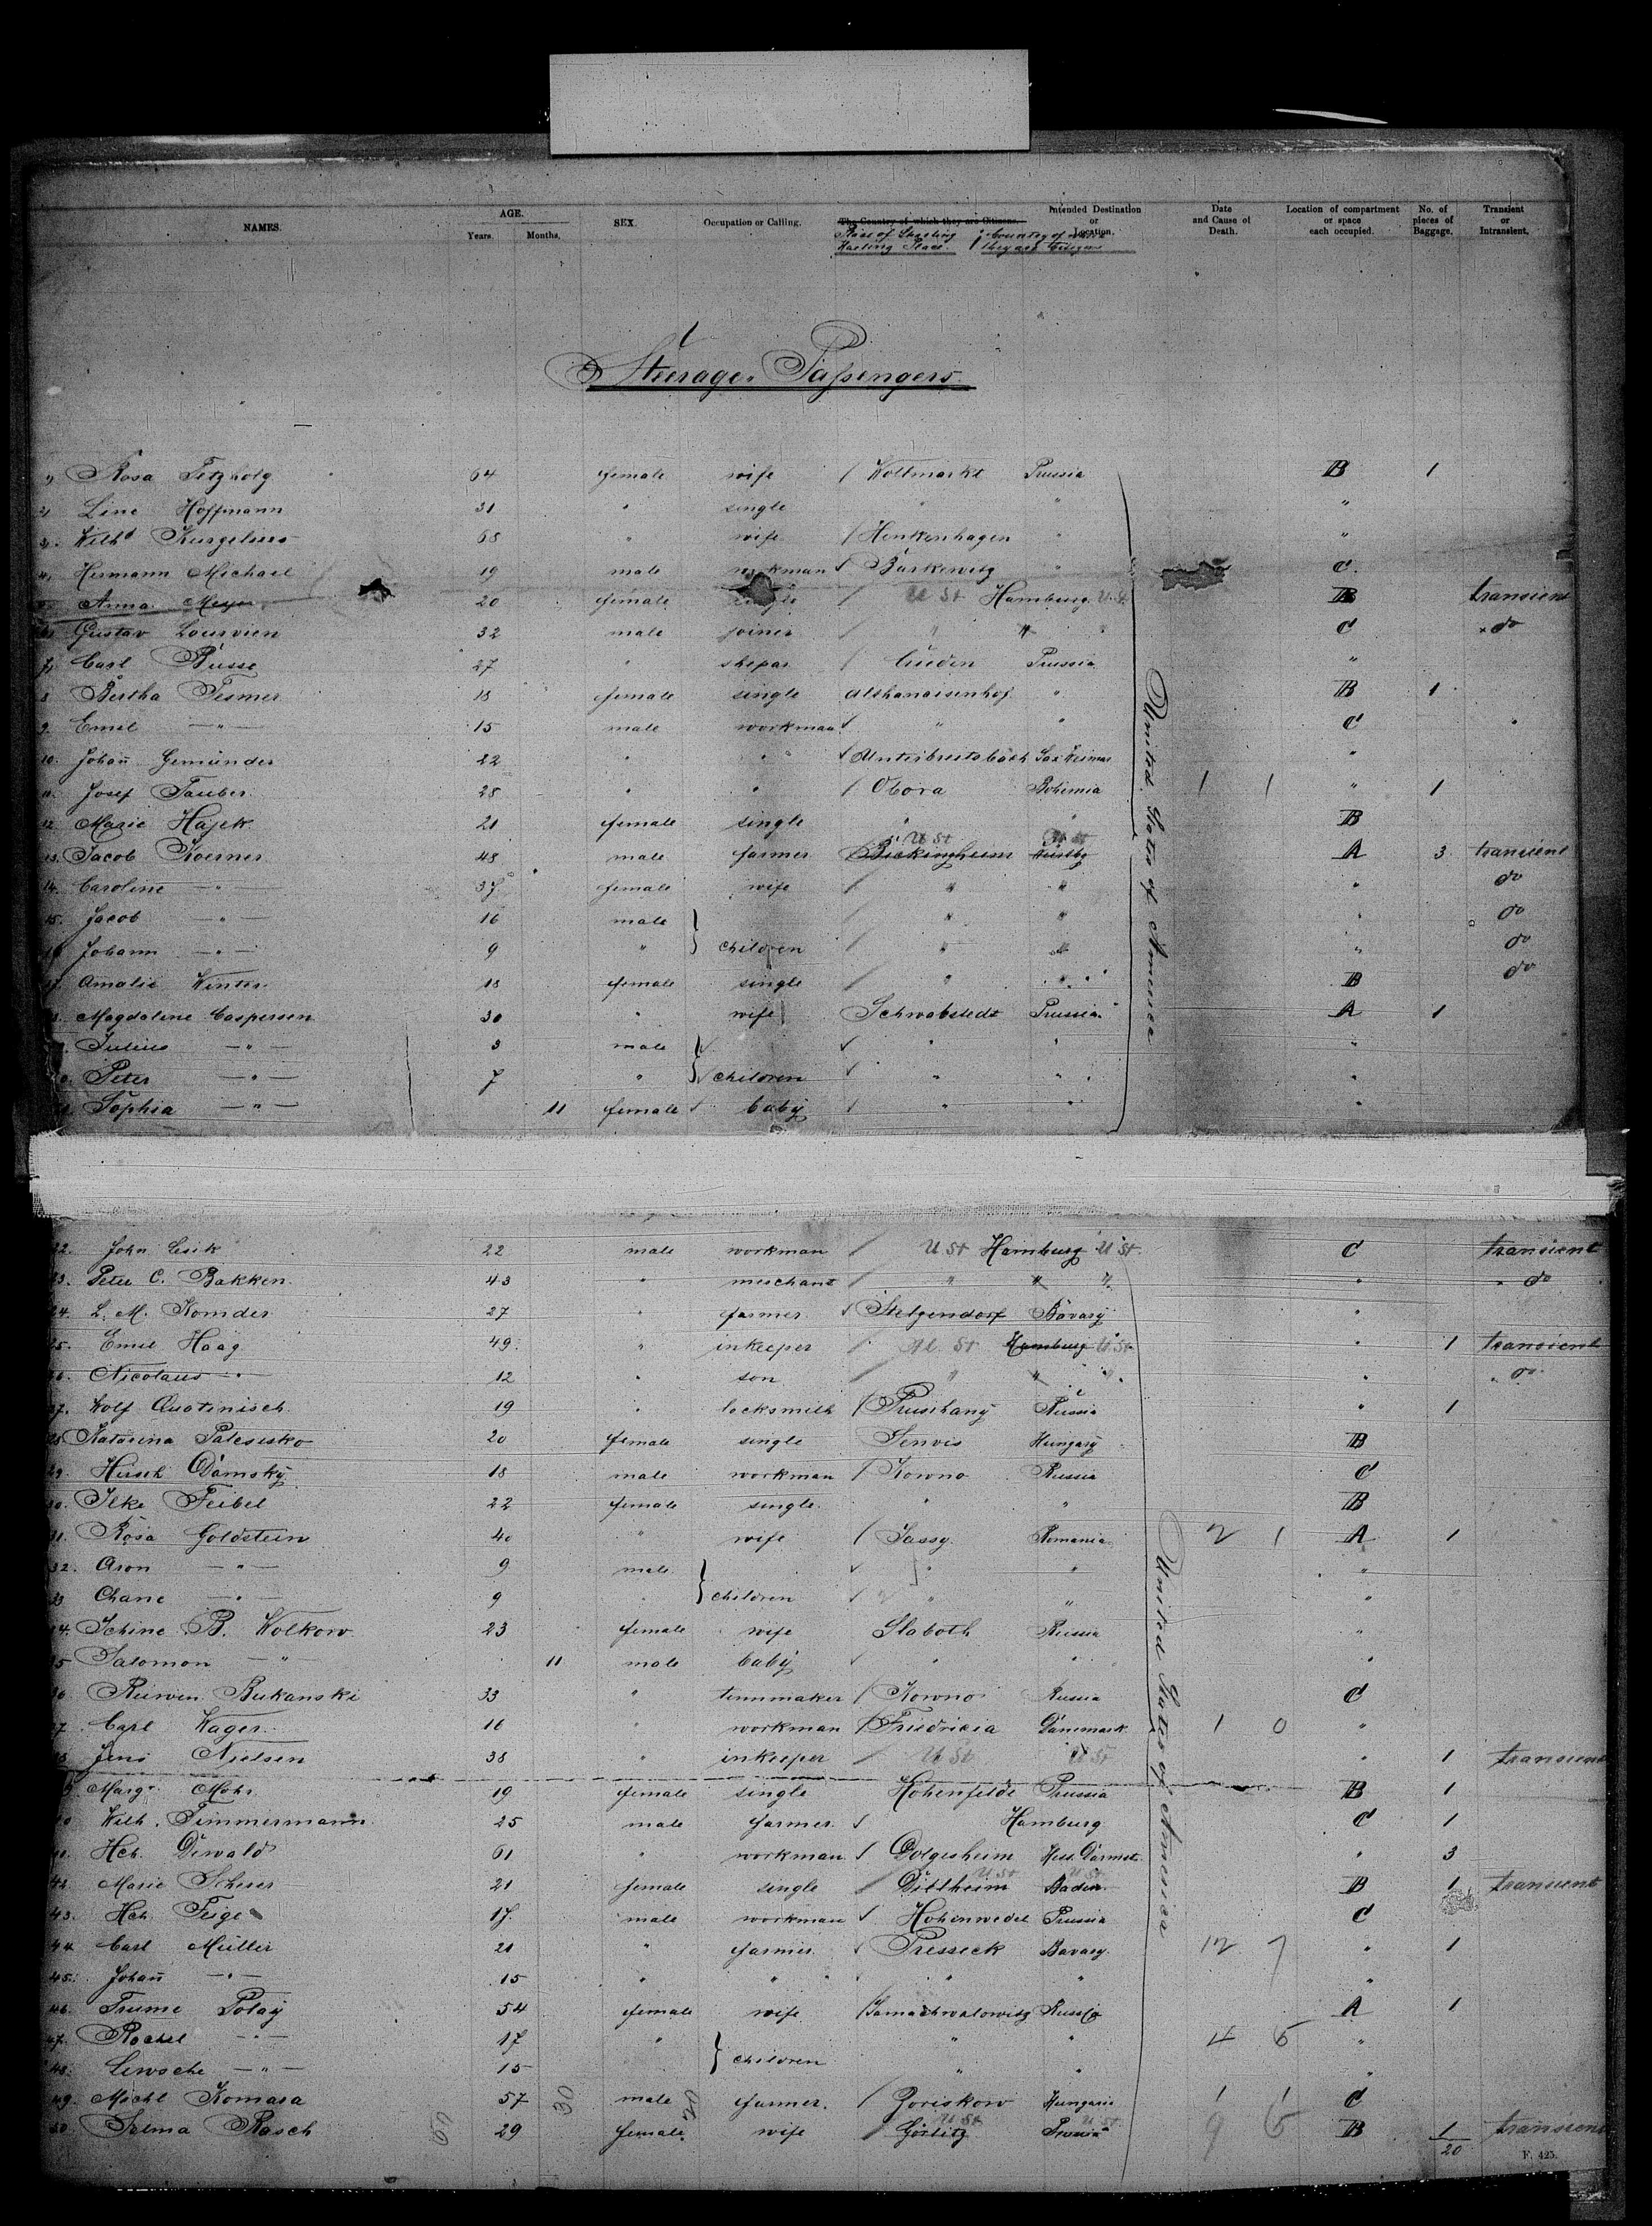 NAMES. AGE. Years. Months. SEX. Occupation or Calling. The Country of which they are Citizens. Intended Destination or Location. Date and Cause of Death. Location of compartment or space each occupied. No. of pieces of Baggage. Transient or Intransient.
Place of Starting Starting Place. Country of which they are Citizens
Steerage Passengers
1, Rosa 64 female wife Wollmarkt Prussia B 1
2, Line Hoffmann 31 " single " " "
3. Wilhd 68 " wife Henkenhagen " "
4, Hermann Michael 19 male workman Bärkewitz " C.
5. Anna Meyer 20 female single U St Hamburg U. St. B transient
6. Gustav Lourvien 32 male joiner " " " C do
7, Carl Busse 27 " shepar Prussia "
8 Bertha Tesmer 18 female single " B 1
9. Emil — " — 15 male workman " " C
10. Johañ Gemünder 22 " " Unterbreitsbach Sax Weimar "
11. Josef Tauber 28 " " Obora Bohemia 1 1 " 1
12. Marie Hajek 21 female single " " B
13. Jacob Koerner 48 male farmer U St Bickingheim U St A 3 transient
14. Caroline — " — 37 female wife " " " do
15. Jacob — " — 16 male " " " do
16 Johann — " — 9 " children " " " do
17. Amalie Winter 18 female single " " B do
18. Magdalene Caspersen 30 " wife Schwabstedt Prussia A 1
19. Julius — " — 3 male " " "
20. Peter — " — 7 " children " " "
21. Sophia — " — 11 female baby " " "
United States of America
22. John Cesik 22 male workman U St Hamburg U St. C transient
23. Peter C. Bakken 43 " merchant " " " " do
24. L. M. Komder 27 " farmer Stelgendorf Bavary "
25. Emil Haag 49. " inkeeper U. St Hamburg U. St. " 1 transient
26. Nicolaus — " 12 " son " " " " do
27. Wolf Quotinisch 19 " locksmith Pruschany Russia " 1
28 Katarina Palesisko 20 female single Tenvis Hungary B
29. Hirsch Damsky 18 male workman Kowno Russia C
30. Ilke Feibel 22 female single " " B
31. Rosa Goldstein 40 " wife Jassy Romania 2 1 A 1
32. Aron — " — 9 male " " "
33 Chane — " — 9 " children " " "
34. Schine B. Wolkow 23 female wife Slaboth Russia "
35 Salomon — " — 11 male baby " " "
36. Ruwen Bukanski 33 " Kowno Russia C
37. Carl Wager 16 " workman Fridricia Danemark 1 0 "
38 Jens Nielsen 38 " inkeeper U St U St " 1 transient
39 Marg. Mohr 19 female single Hohenfelde Prussia B 1
40 Wilh. Timmermann 25 male farmer Hamburg C 1
41. Hch. Diwald 61 " workman Dolgesheim Hess. Darmst. " 3
42. Marie Scherer 21 female single U St Dittheim U St Baden B 1 transient
43. Hch. Feige 17 male workman Hohenwedel Prussia C
44 Carl Müller 21 " farmer Presseck Bavary 12 7 " 1
45. Johañ — " — 15 " " " " "
46. Trume Polay 54 female wife Russia A 1
47. Rachel — " — 17 " " " 4 5 "
48. Lewsche — " — 15 children " " "
49. Michl Komara 57 30 male 20 farmer. Goriskow Hungaria 1 1 C
50. Selma Rasch 50 29 female wife U St Görlitz U St Prussia 9 5 B 1 transient
20
United States of America
F. 425.